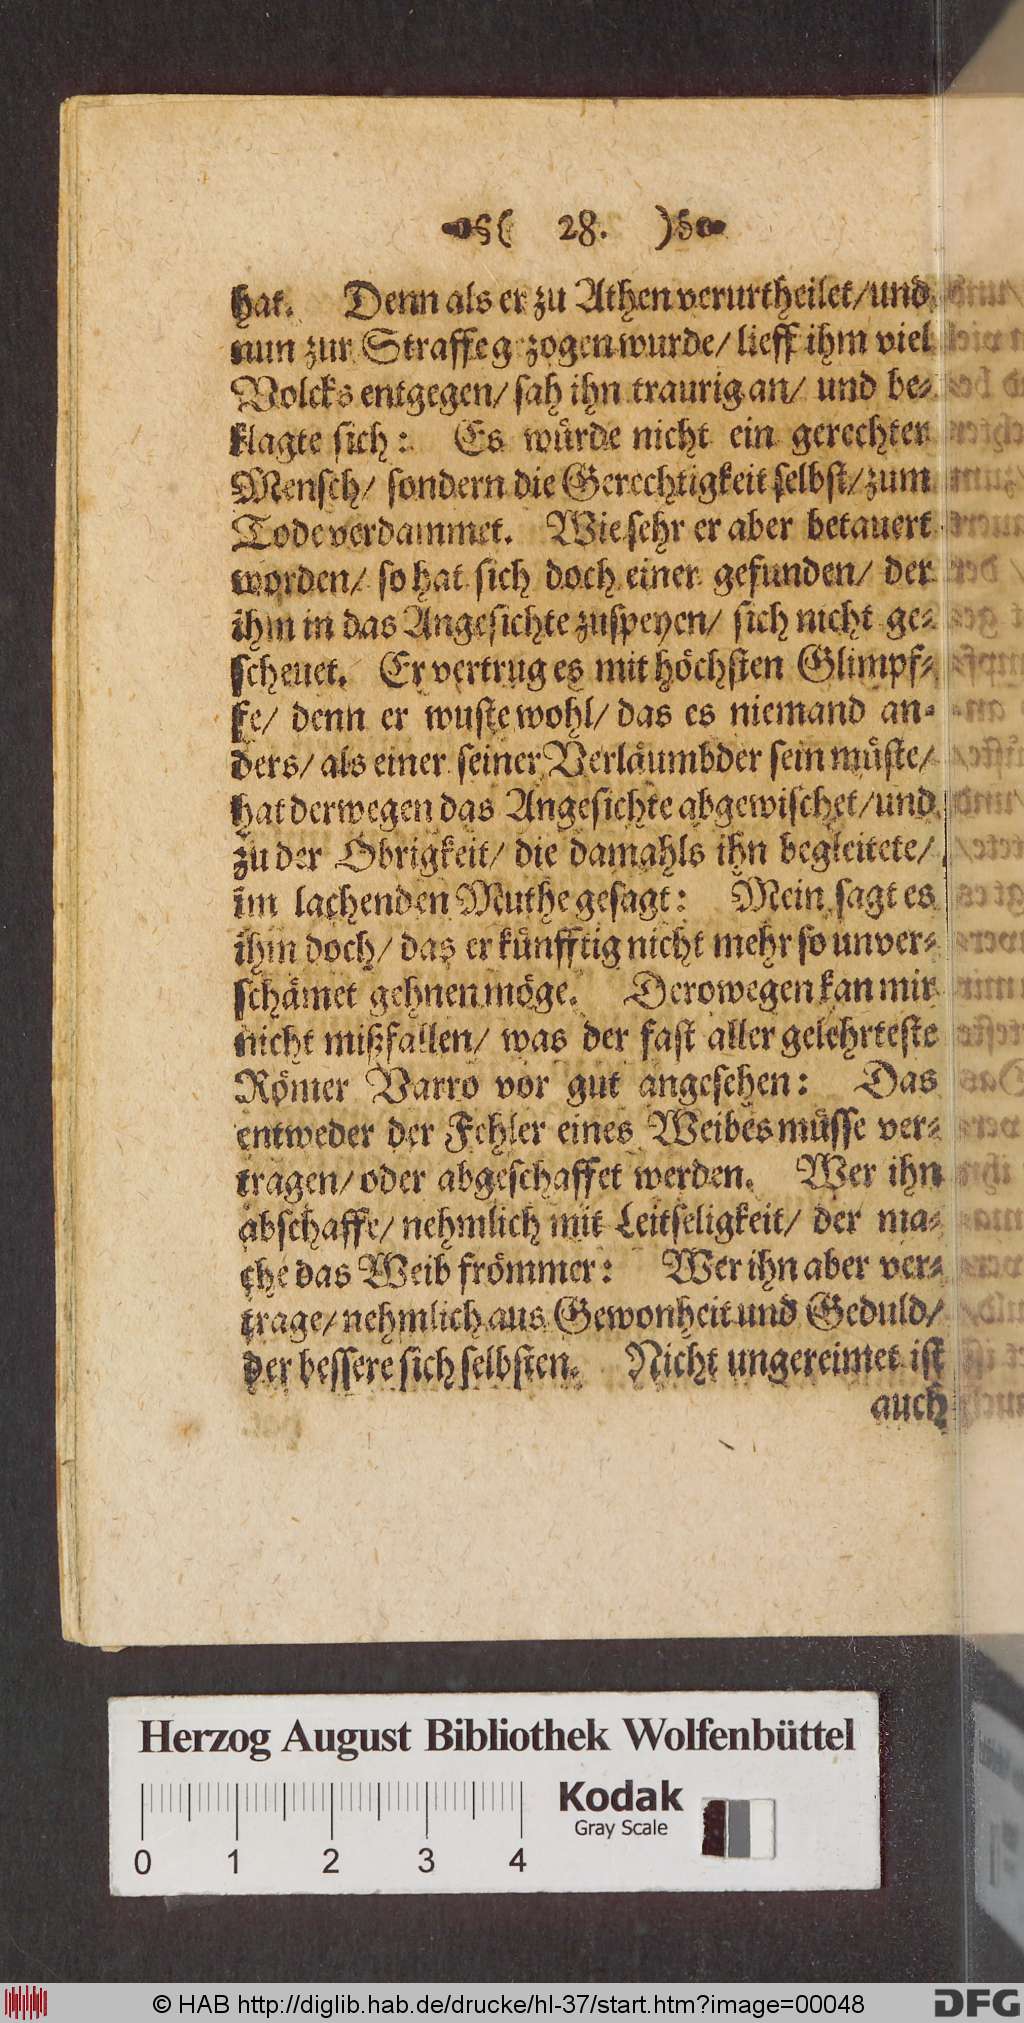 ( 28. )
hat. Denn als er zu Athen verurtheilet/und
nun zur Straffe gezogen wurde/ lieff ihm viel
Volcks entgegen/ sah ihn traurig an/ und be-
klagte sich: Es würde nicht ein gerechter
Mensch/ sondern die Gerechtigkeit selbst/zum
Tode verdammet. Wie sehr er aber betauert
worden/ so hat sich doch einer gefunden/ der
ihm in das Angesichte zuspeyen/ sich nicht ge-
scheuet. Er vertrug es mit höchsten Glimpf-
fe/ denn er wuste wohl/ das es niemand an-
ders/ als einer seiner Verläumbder sein müste/
hat derwegen das Angesichte abgewischet/und
zu der Obrigkeit/ die damahls ihn begleitete/
im lachenden Muthe gesagt: Mein sagt es
ihm doch/ das er künfftig nicht mehr so unver-
schämet gehnen möge. Derowegen kan mir
nicht mißfallen/ was der fast aller gelehrteste
Römer Varro vor gut angesehen: Das
entweder der Fehler eines Weibes müsse ver-
tragen/ oder abgeschaffet werden. Wer ihn
abschaffe/ nehmlich mit Leitseligkeit/ der ma-
che das Weib frömmer: Wer ihn aber ver-
trage/ nehmlich aus Gewonheit und Geduld/
der bessere sich selbsten. Nicht ungereimet ist
auch
Herzog August Bibliothek Wolfenbüttel
Kodak
Gray Scale
0 1 2 3 4
© HAB http://diglib.hab.de/drucke/hl-37/start.htm?image=00048
DFG